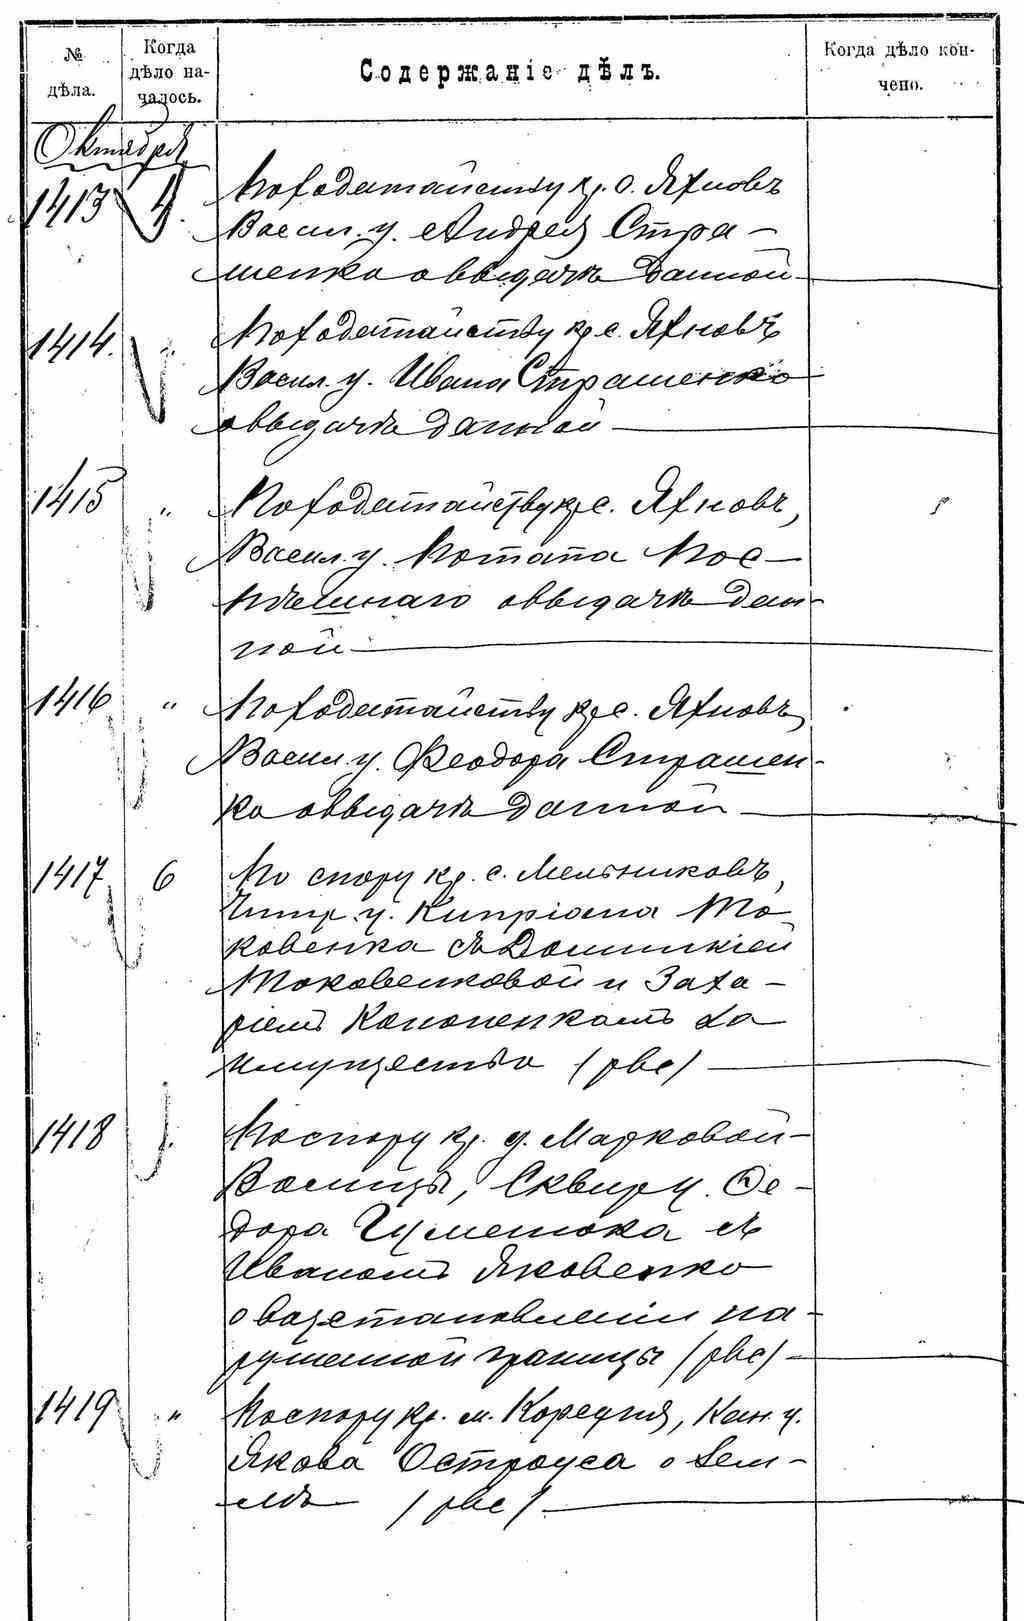 № дѣла.
Когда дѣло на-
чалось.
Содержаніе дѣлъ.
Когда дѣло кон-
чено.
Октября
1413 4. По ходатайству кр. с. Яхновъ
Васил. у. Андрея Стра-
шенко о выдачѣ данной
1414. " По ходатайству кр. с. Яхновъ
Васил. у. Ивана Страшенко
о выдачѣ данной
1415 " По ходатайству кр. с. Яхновъ,
Васил. у. Потапа Пос-
пѣшнаго о выдачѣ дан-
ной
1416 " По ходатайству кр. с. Яхновъ,
Васил. у. Феодора Страшен-
ко о выдачѣ данной
1417 6 По спору кр. с. Мельниковъ,
у. Кипріана Мо-
ковенка съ Домникіей
Моковенковой и Заха-
ріемъ Кононенкомъ за
имущество (рвс)
1418 " По спору кр. д. Марковой-
Волицы, Сквир. у. Фе-
дора съ
Иваномъ Яковенко
о возстановленіи на-
рушенной границы (рвс)
1419 " По спору кр. м. Корсуня, Кан. у.
Якова Остроуса о зем-
лѣ (рвс)